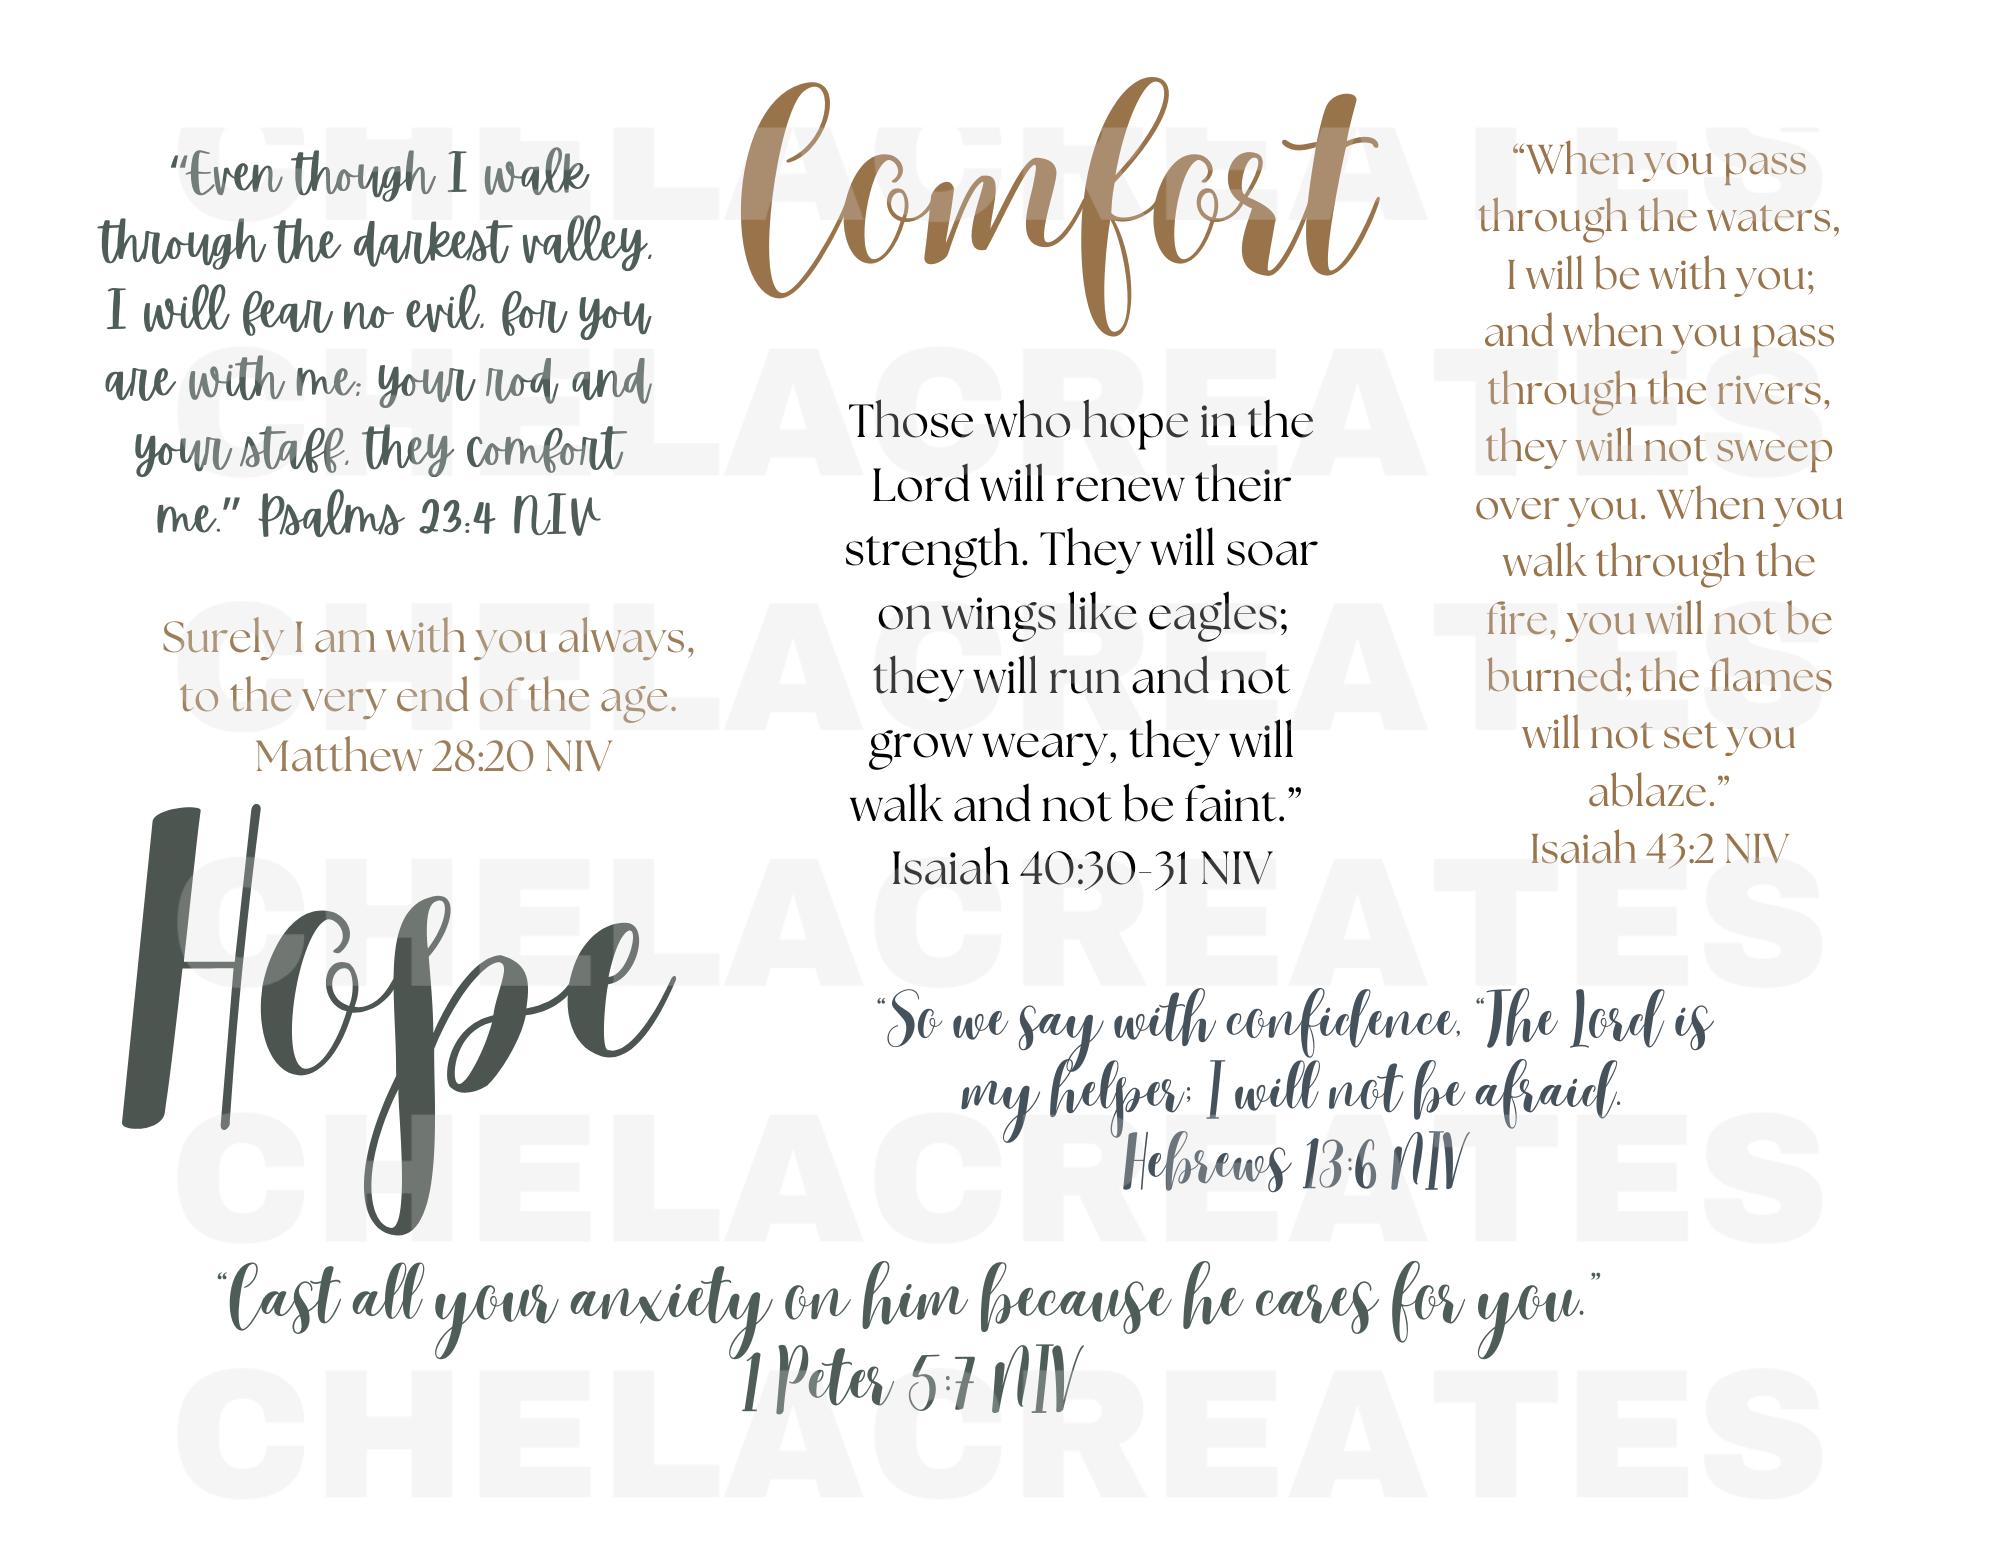 Comfort
“Even though I walk
through the darkest valley,
I will fear no evil, for you
are with me; your rod and
your staff, they comfort
me.” Psalms 23:4 NIV
Surely I am with you always,
to the very end of the age.
Matthew 28:20 NIV
Hope
Those who hope in the
Lord will renew their
strength. They will soar
on wings like eagles;
they will run and not
grow weary, they will
walk and not be faint.”
Isaiah 40:30-31 NIV
“When you pass
through the waters,
I will be with you;
and when you pass
through the rivers,
they will not sweep
over you. When you
walk through the
fire, you will not be
burned; the flames
will not set you
ablaze.”
Isaiah 43:2 NIV
“So we say with confidence, “The Lord is
my helper; I will not be afraid.
Hebrews 13:6 NIV
“Cast all your anxiety on him because he cares for you.”
1 Peter 5:7 NIV
CHELACREATES
CHELACREATES
CHELACREATES
CHELACREATES
CHELACREATES
CHELACREATES